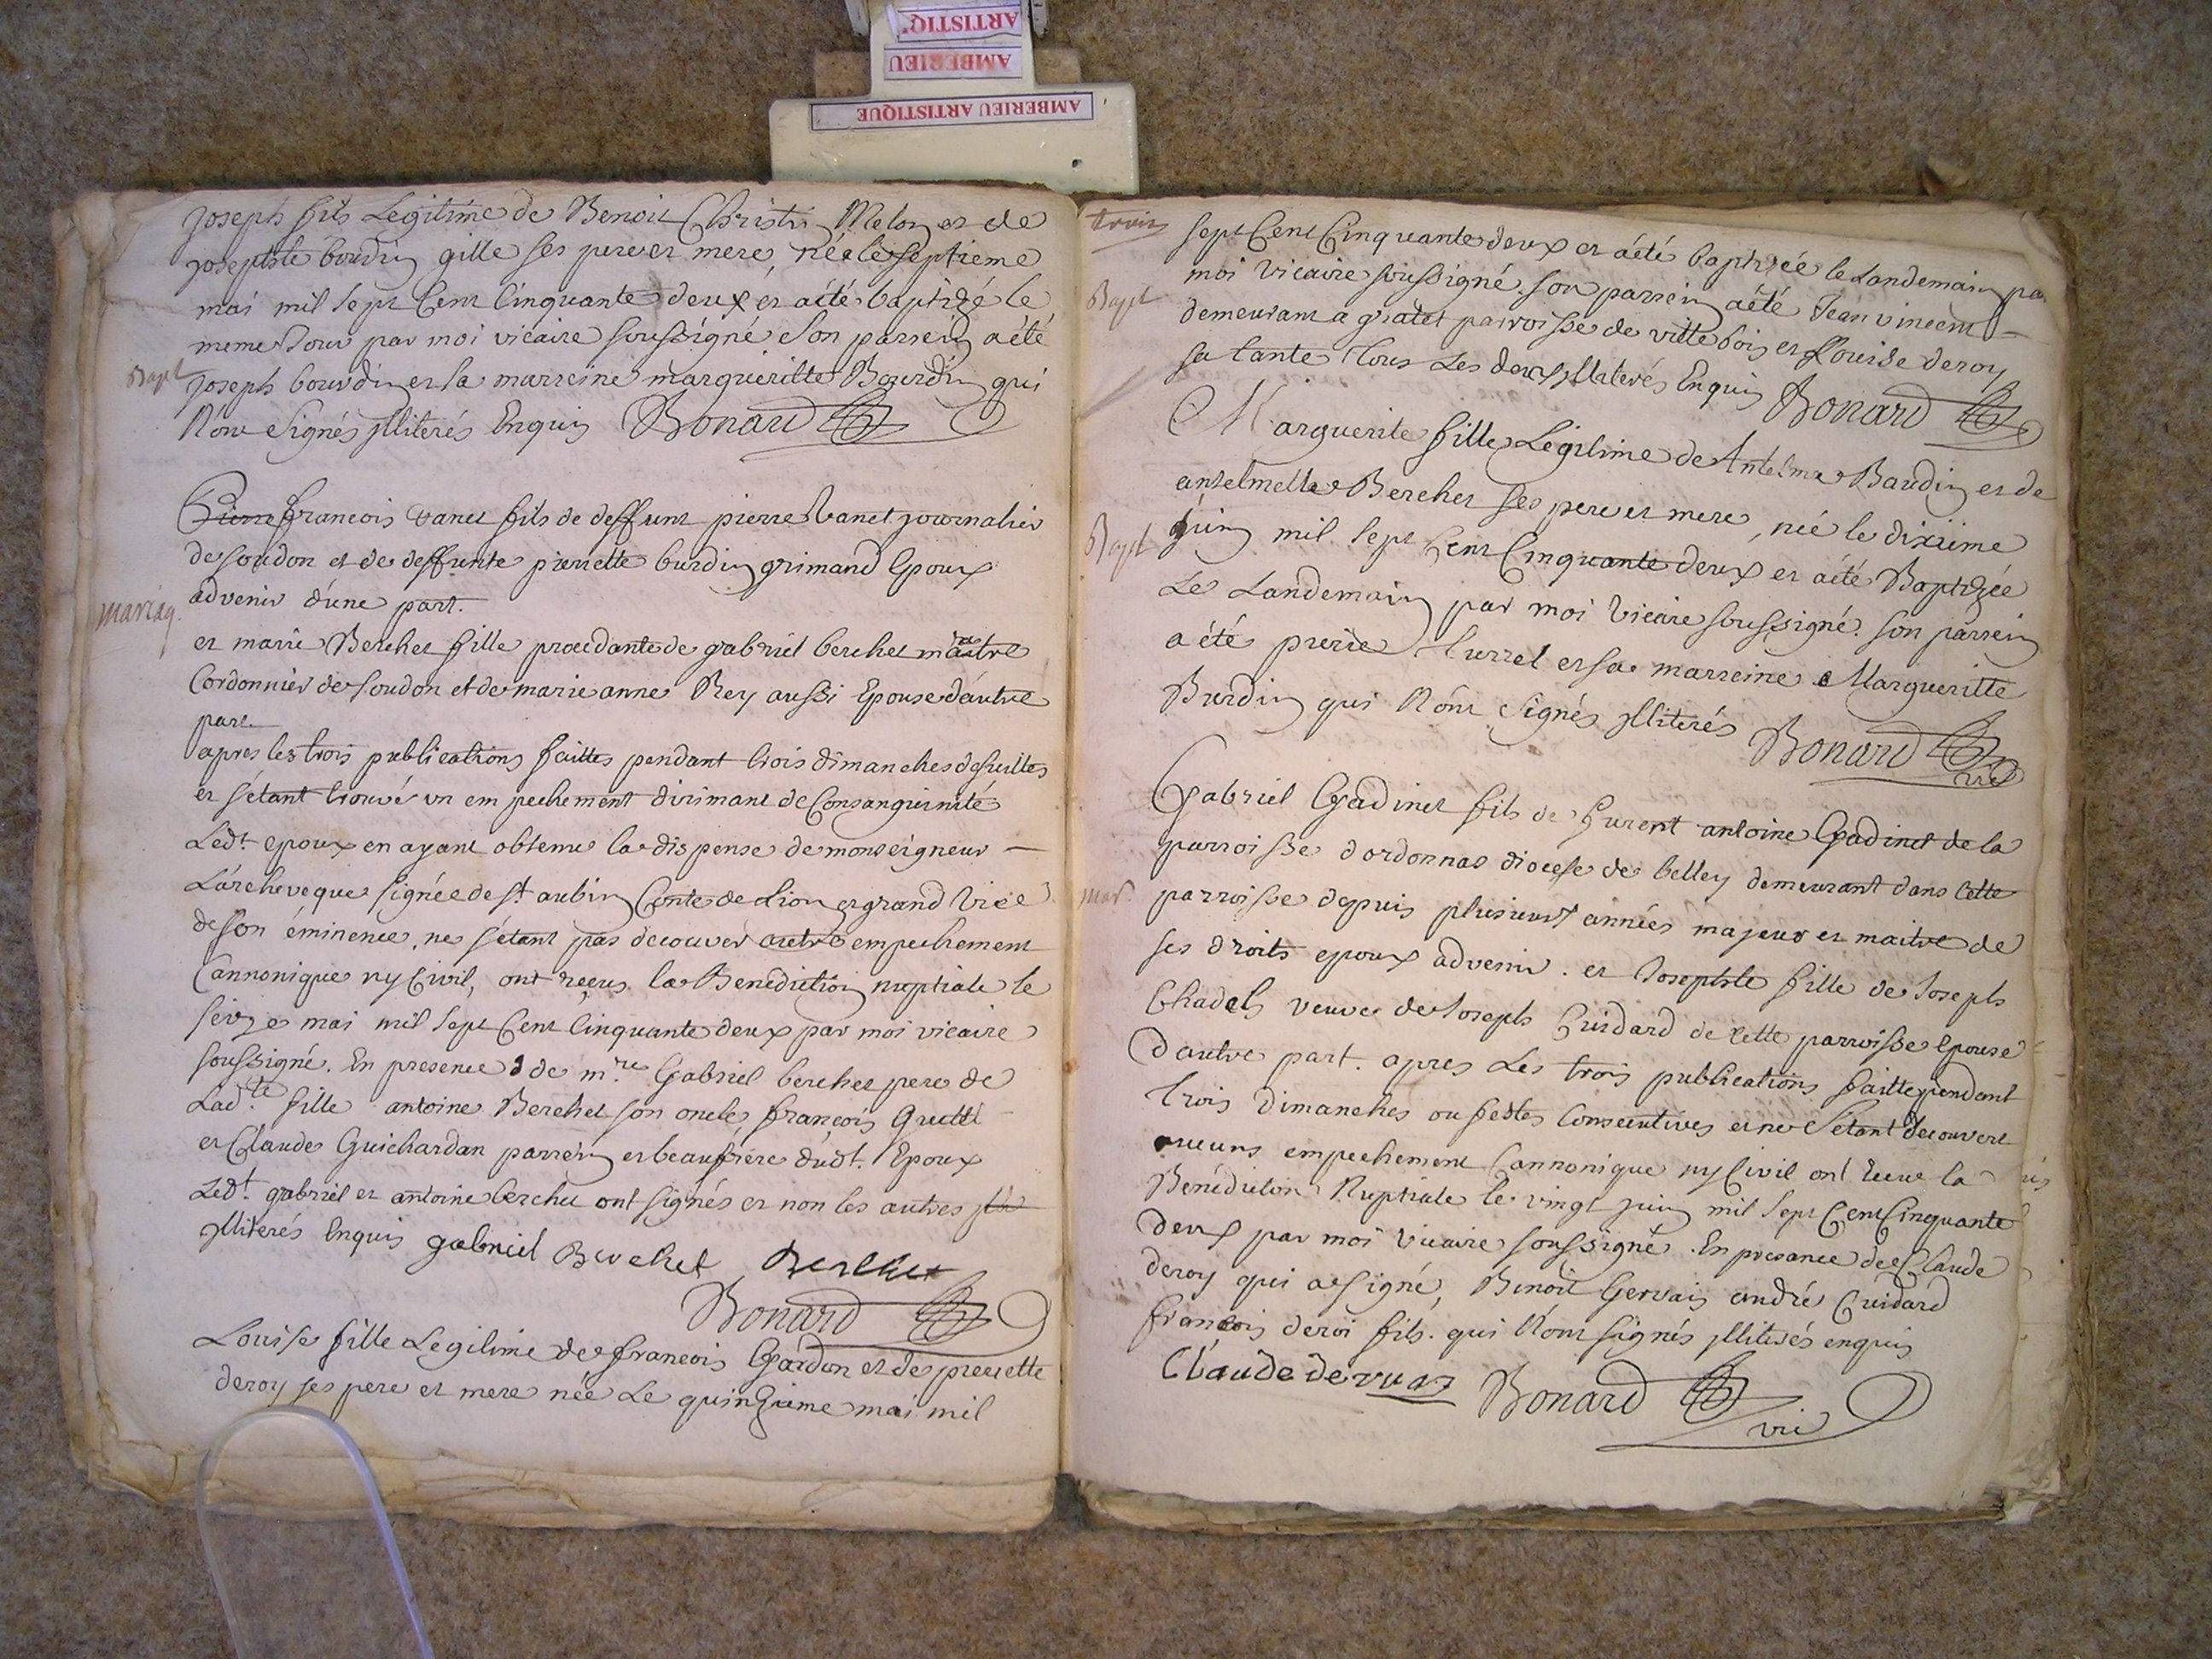 ARTISTIQ'
AMBERIEU
AMBERIEU ARTISTIQUE
Joseph fils Legitime de Benoit Christin Melon et de
josephte bourdin gille ses pere et mere, né le septieme
mai mil sept Cent Cinquante deux et a été baptizé le
meme Jour par moi vicaire soussigné Son parrein a été
Bapt
Joseph bourdin et sa marreine margueritte Bourdin qui
N'ont Signés jlliterés Enquis Bonard
Pierre francois vanet fils de deffunt pierre Vanet journalier
de soudon et de deffunte pierrette burdin grimand Epoux
advenir d'une part.
mariag.
et marie Berchet fille procedante de gabriel berchet maitre
Cordonnier de soudon et de marie anne Rey aussi Epouse d'autre
part.
apres les trois publications faittes pendant trois dimanches de suittes
et s'etant trouvé un empechement dirimant de Consanguinité
Led.t epoux en ayant obtenu la dispense de monseigneur –
L'archeveque signée de st. aubin Conte de Lion et grand Vice
de son éminence, ne s'etant pas decouver autre empechement
Cannonique ny Civil, ont reçus la Benediction nuptiale le
seize mai mil sept Cent Cinquante deux par moi vicaire
soussigné. En presence de m.re Gabriel berchet pere de
Lad.te fille antoine Berchet son oncle, françois
et Claude Guichardan parrein et beaufrere dud.t Epoux
Led.t gabriel et antoine berchet ont signés et non les autres
jlliterés Enquis gabriel Berchet Berchet
Bonard
Louise fille Legitime de francois Gardon et de pierrette
deroy ses pere et mere née Le quinzieme mai mil
trois
sept Cent Cinquante deux et a été baptizée le Landemain pa
Bapt
moi Vicaire soussigné. son parrein a été Jean vincent –
demeurant a paroisse de villebois et Louise deroy
sa tante tous Les deux jlliterés Enquis Bonard
Marguerite fille Legitime de Antelme Baudin et de
antelmette Berchet ses pere et mere, née le dixiéme
Bapt
juin mil sept Cent Cinquante deux et a été Baptizée
Le Landemain par moi Vicaire soussigné. son parrein
a été pierre turrel et sa marreine Margueritte
Burdin qui N'ont Signés jlliterés Bonard
vic
Gabriel Gadinet fils de antoine Gadinet de la
parroisse d'ordonnas diocese de belley demeurant dans Cette
mar.
parroisse depuis plusieurs années majeur et maitre de
ses droits epoux advenir. et Josephte fille de Joseph
Chadel veuve de Joseph Guidard de cette parroisse Epouse
d'autre part. apres Les trois publications faitte pendant
trois Dimanches ou festes Consecutives et ne S'etant decouvert
aucuns empechement Cannonique ny Civil ont la
Bénédiction Nuptiale le vingt juin mil sept Cent Cinquante
deux par moi Vicaire soussigné. En presance de Claude
deroy qui a signé, Benoit Gervais andré Guidard
francois deroi fils. qui N'ont signés jlliterés enquis
Claude Bonard
vic